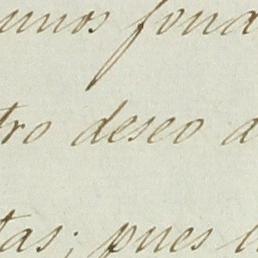 unos fond
tro deseo d
tas; pues